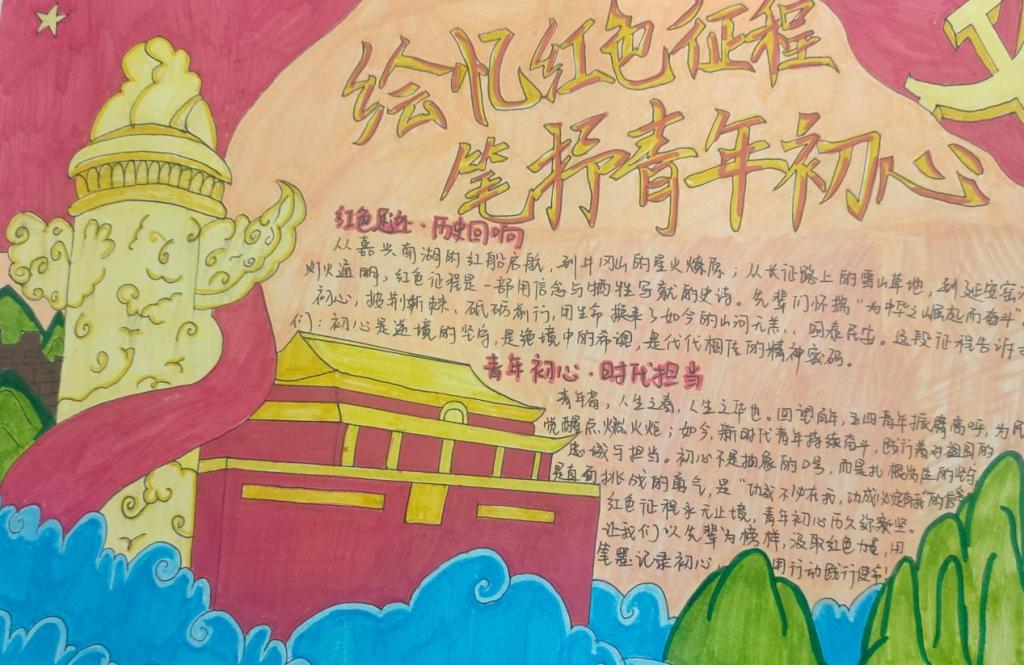 绘忆红色征程
笔抒青年初心
红色足迹·历史回响
从嘉兴南湖的红船启航，到井冈山的星火燎原；从长征路上的雪山草地，到延安窑
灯火通明，红色征程是一部用信念与牺牲写就的史诗。先辈们怀揣“为中华之崛起而奋斗”
初心，披荆斩棘、砥砺前行，用生命换来了如今的山河无恙、国泰民安。这段征程告诉
们：初心是逆境的坚守，是绝境中的希望，是代代相传的精神密码。
青年初心·时代担当
青年者，人生之春，人生之华也。回望百年，五四青年振臂高呼，为
觉醒点燃火炬；如今，新时代青年接续奋斗，践行着对祖国的
忠诚与担当。初心不是抽象的口号，而是扎根的坚守，
是直面挑战的勇气，是“功成不必在我，功成必定有我”的
红色征程永无止境，青年初心历久弥坚。
让我们以先辈为榜样，汲取红色力量，用
笔墨记录初心，用行动践行使命！